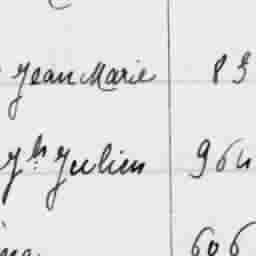 Jean Marie 83
Jh Julien 964
606